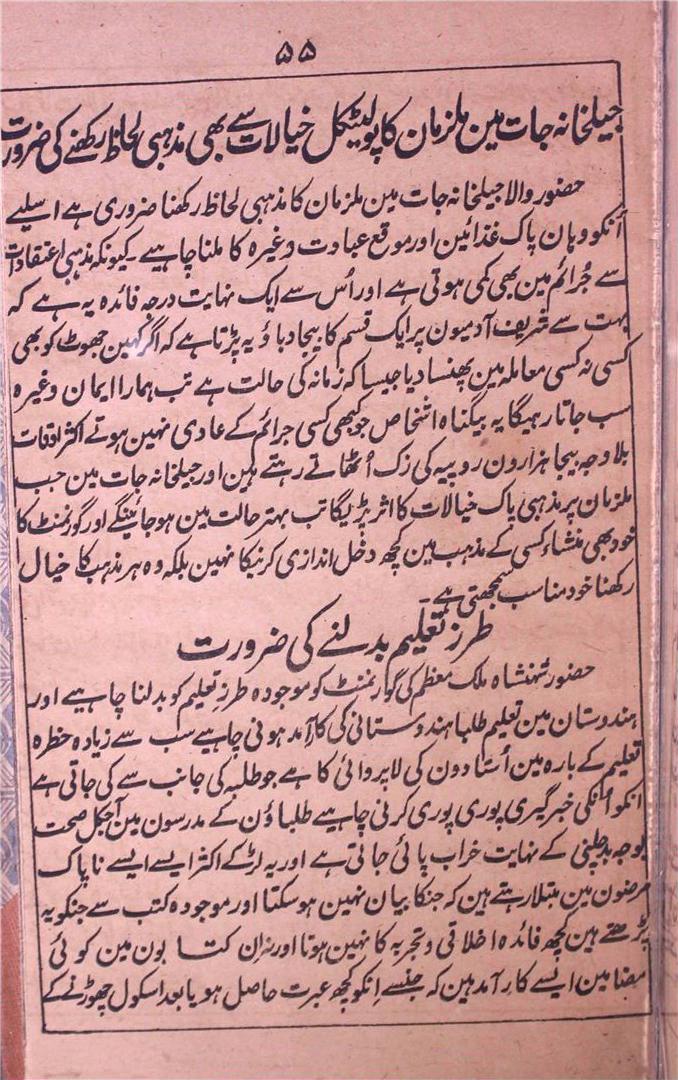 ۵۵
جیلخانہ جات مین ملزمان کا پولیٹکل خیالات سے بھی مذہبی لحاظ رکھنے کی ضرورت
حضور والا جیلخانہ جات مین ملزمان کا مذہبی لحاظ رکھنا ضروری ہے اسلیے
اُنکو وہان پاک غذائین اور موقع عبادت وغیرہ کا ملنا چاہیے ۔ کیونکہ مذہبی اعتقادات
سے جُرائم مین بھی کمی ہوتی ہے اور اُس سے ایک نہایت درجہ فائدہ یہ ہے کہ
بہت سے شریف آدمیون پر ایک قسم کا بیجا دباؤ یہ پڑتا ہے کہ اگر کہین جھوٹ کو بھی
کسی نہ کسی معاملہ مین پھنسا دیا جیسا کہ زمانہ کی حالت ہے تب ہمارا ایمان وغیرہ
سب جاتا رہیگا یہ بیگناہ اشخاص جو کبھی کسی جرائم کے عادی نہین ہوتے اکثر اوقات
بلا وجہ بیجا ہزارون روپیہ کی زک اُٹھاتے رہتے ہین اور جیلخانہ جات مین جب
ملزمان پر مذہبی پاک خیالات کا اثر پڑیگا تب بہتر حالت مین ہو جائینگے اور گورنمنٹ کا
خود بھی منشاء کسی کے مذہب مین کچھ دخل اندازی کرنیکا نہین بلکہ وہ ہر مذہب کا خیال
رکھنا خود مناسب سمجھتی ہے۔
طرز تعلیم بدلنے کی ضرورت
حضور شہنشاہ ملک معظم کی گورنمنٹ کو موجودہ طرز تعلیم کو بدلنا چاہیے اور
ہندوستان مین تعلیم طلبا ہندوستانی کی کارآمد ہونی چاہیے سب سے زیادہ خطرہ
تعلیم کے بارہ مین اُستادون کی لاپروائی کا ہے جو طلبہ کی جانب سے کی جاتی ہے
انکو اُنکی خبر گیری پوری پوری کرنی چاہیے طلباؤن کے مدرسون مین آجکل صحت
بوجہ بدچلنی کے نہایت خراب پائی جاتی ہے اور یہ لڑکے اکثر ایسے ایسے ناپاک
مرضون مین مبتلا رہتے ہین کہ جنکا بیان نہین ہو سکتا اور موجودہ کتب سے جنکو یہ
پڑھتے ہین کچھ فائدہ اخلاقی و تجربہ کا نہین ہوتا اور نہ ان کتابون مین کوئی
مضامین ایسے کارآمد ہین کہ جنسے انکو کچھ عبرت حاصل ہو یا بعد اسکول چھوڑنے کے